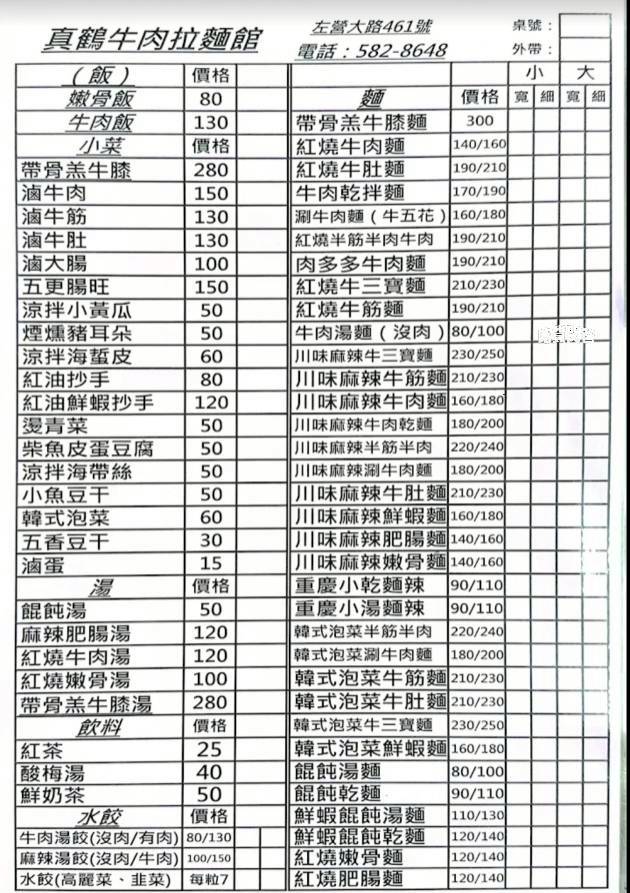 真鶴牛肉拉麵館
左營大路461號
電話：582-8648
桌號：
外帶：
（飯） 價格
嫩骨飯 80
牛肉飯 130
小菜 價格
帶骨羔牛膝 280
滷牛肉 150
滷牛筋 130
滷牛肚 130
滷大腸 100
五更腸旺 150
涼拌小黃瓜 50
煙燻豬耳朵 50
涼拌海蜇皮 60
紅油抄手 80
紅油鮮蝦抄手 120
燙青菜 50
柴魚皮蛋豆腐 50
涼拌海帶絲 50
小魚豆干 50
韓式泡菜 60
五香豆干 30
滷蛋 15
湯 價格
餛飩湯 50
麻辣肥腸湯 120
紅燒牛肉湯 120
紅燒嫩骨湯 100
帶骨羔牛膝湯 280
飲料 價格
紅茶 25
酸梅湯 40
鮮奶茶 50
水餃 價格
牛肉湯餃(沒肉/有肉) 80/130
麻辣湯餃(沒肉/牛肉) 100/150
水餃(高麗菜、韭菜) 每粒7
小 大
麵 價格 寬 細 寬 細
帶骨羔牛膝麵 300
紅燒牛肉麵 140/160
紅燒牛肚麵 190/210
牛肉乾拌麵 170/190
涮牛肉麵（牛五花） 160/180
紅燒半筋半肉牛肉 190/210
肉多多牛肉麵 190/210
紅燒牛三寶麵 210/230
紅燒牛筋麵 190/210
牛肉湯麵（沒肉） 80/100
川味麻辣牛三寶麵 230/250
川味麻辣牛筋麵 210/230
川味麻辣牛肉麵 160/180
川味麻辣牛肉乾麵 180/200
川味麻辣半筋半肉 220/240
川味麻辣涮牛肉麵 180/200
川味麻辣牛肚麵 210/230
川味麻辣鮮蝦麵 160/180
川味麻辣肥腸麵 140/160
川味麻辣嫩骨麵 140/160
重慶小乾麵辣 90/110
重慶小湯麵辣 90/110
韓式泡菜半筋半肉 220/240
韓式泡菜涮牛肉麵 180/200
韓式泡菜牛筋麵 210/230
韓式泡菜牛肚麵 210/230
韓式泡菜牛三寶麵 230/250
韓式泡菜鮮蝦麵 160/180
餛飩湯麵 80/100
餛飩乾麵 90/110
鮮蝦餛飩湯麵 110/130
鮮蝦餛飩乾麵 120/140
紅燒嫩骨麵 120/140
紅燒肥腸麵 120/140